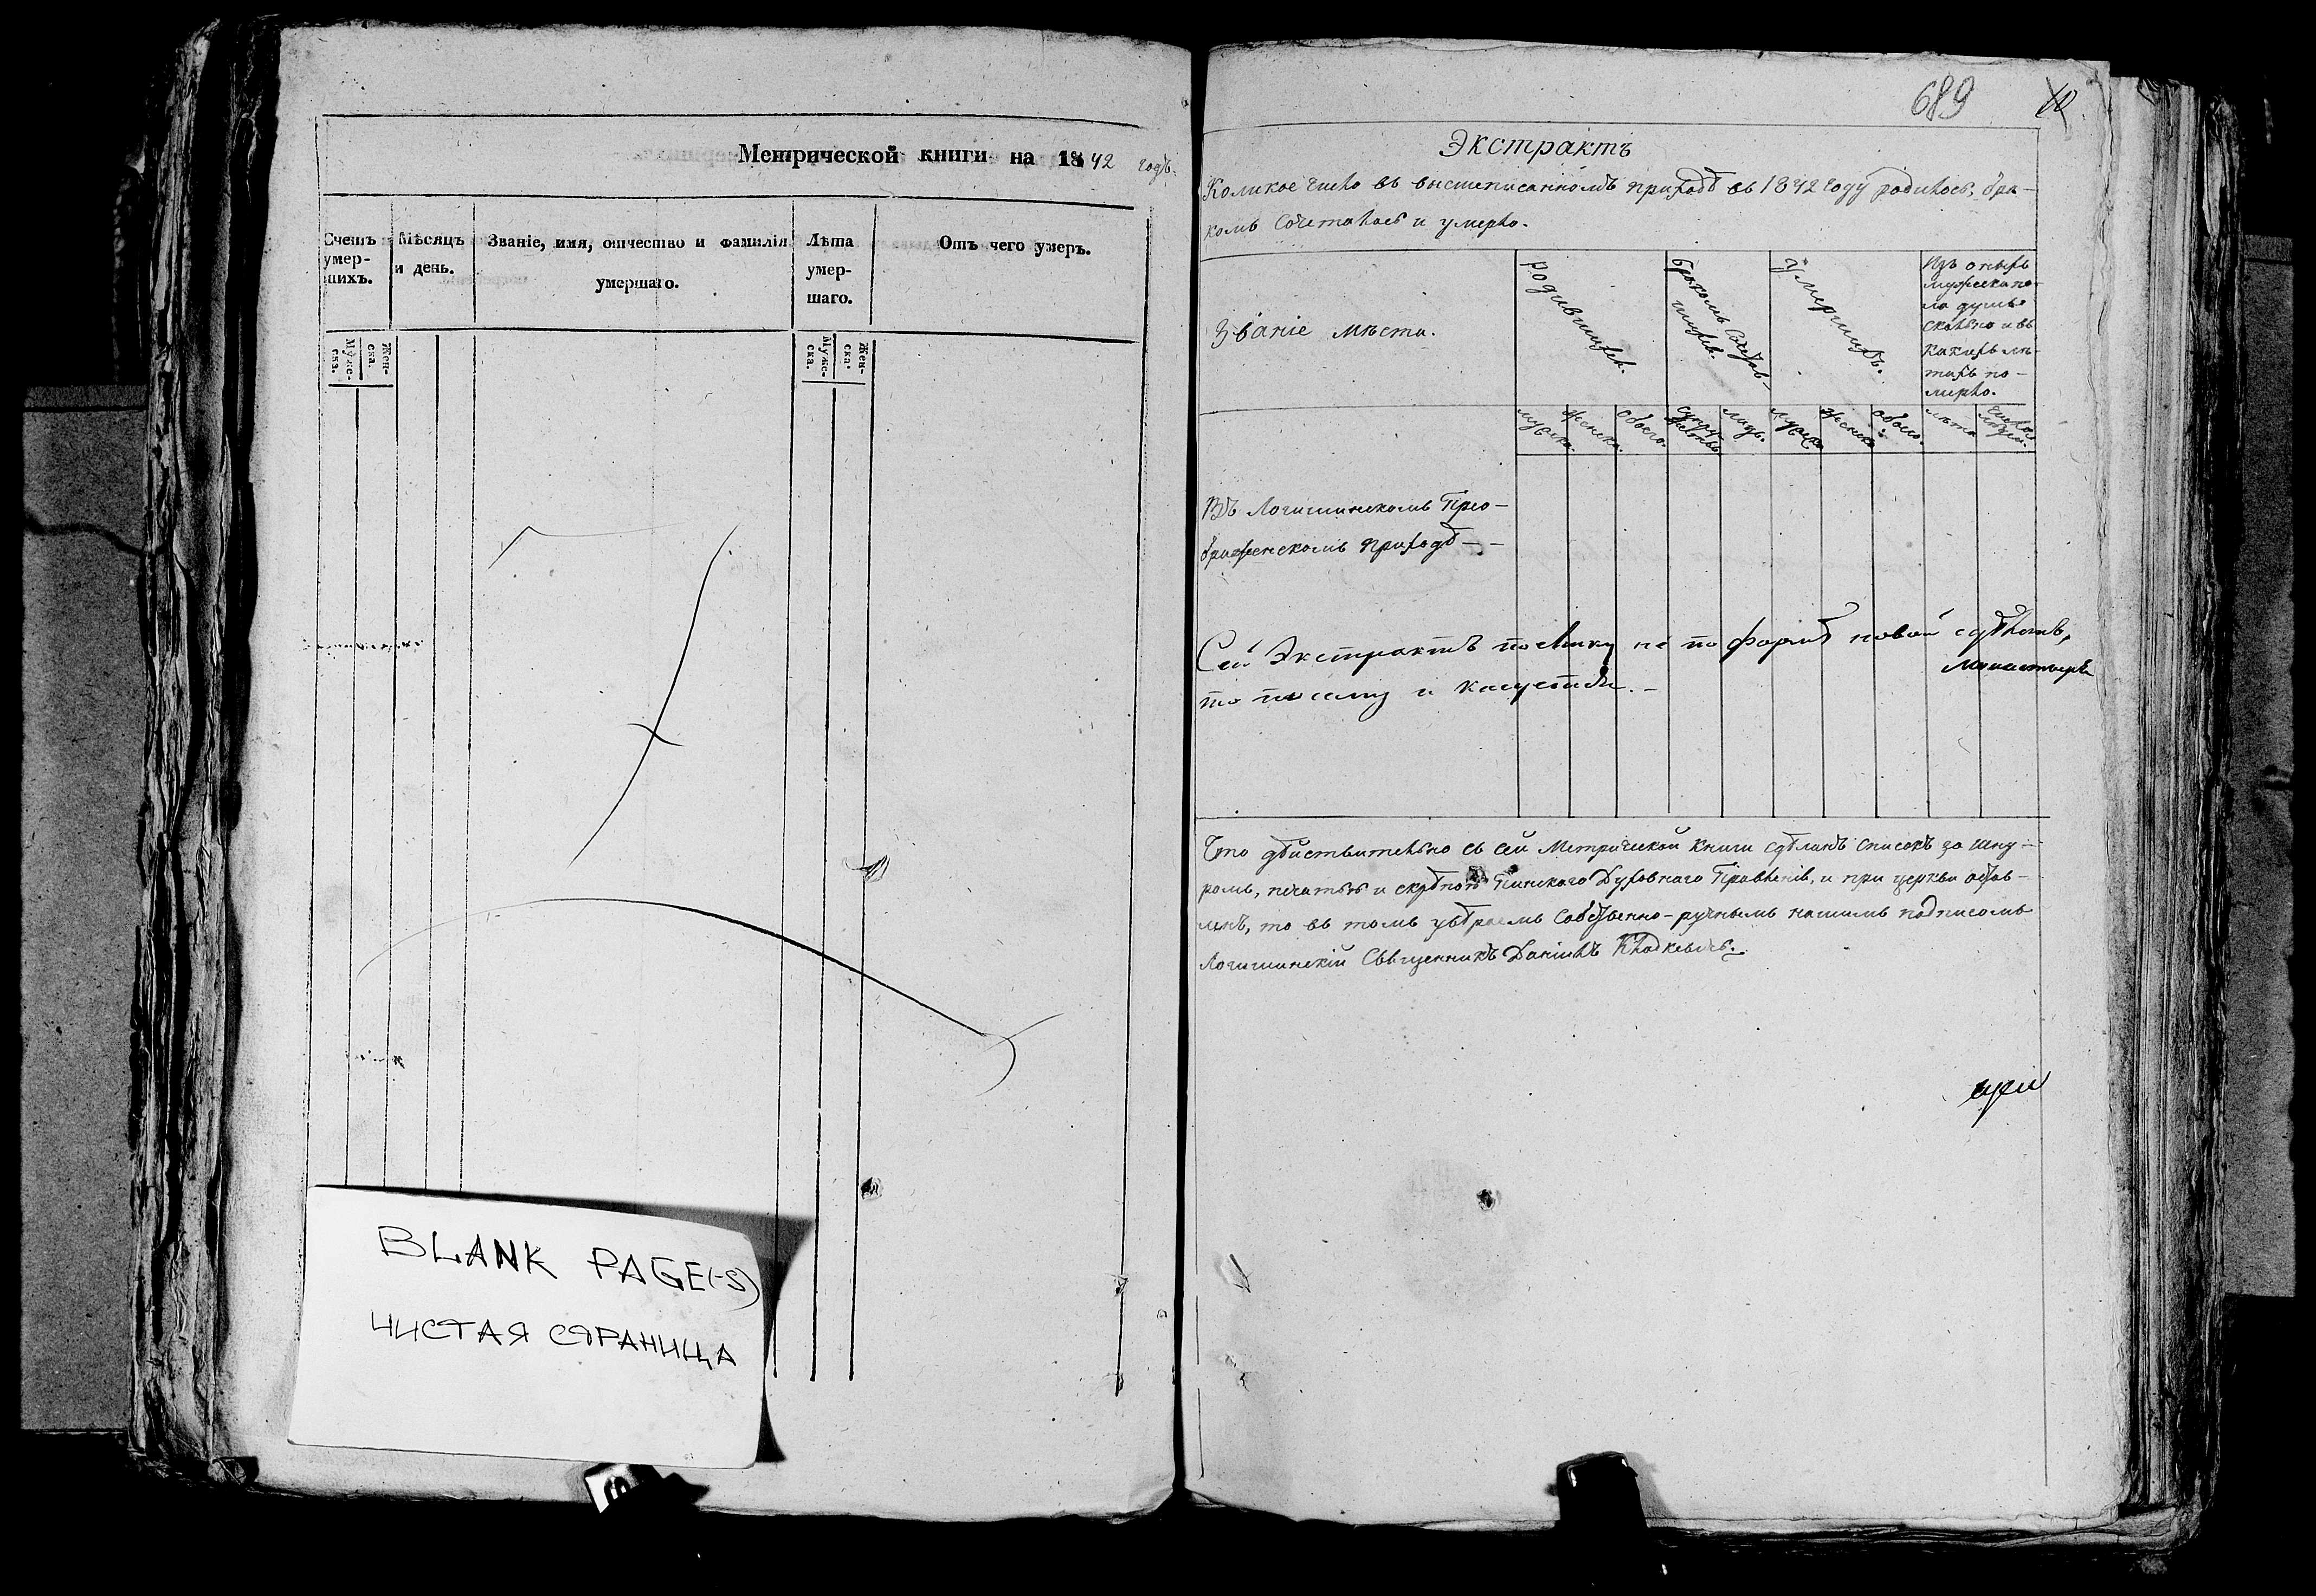 Метрической книги на 1842 годъ.
Счетъ умер-шихъ.
Мѣсяцъ и день.
Званіе, имя, отчество и фамилія умершаго.
Лѣта умер-шаго.
Отъ чего умеръ.
Муже-ска.
Жен-ска.
Муже-ска.
Жен-ска.
BLANK PAGE(-S)
ЧИСТАЯ СТРАНИЦА
689
10
Экстрактъ
Коликое число въ вышеписанномъ приходѣ въ 1842 году родилось, бра-
комъ сочеталось и умерло.
Званіе мѣста.
Родившихся.
Бракомъ сочетав-
шихся.
Умершихъ.
Изъ оныхъ
мужеска по-
ла душъ
сколько и въ
какихъ лѣ-
тахъ по-
мерло.
мужска.
женска.
обоего.
лицъ.
мужска
женска
обоего.
лѣта
Въ Логишинскомъ Прео-
браженскомъ приходѣ
Сей Экстрактъ поелику не по формѣ новой сдѣланъ,
то по сему и
Что дѣйствительно съ сей Метрической книги сдѣланъ списокъ за шну-
ромъ, печатью и скрѣпою Пинскаго Духовнаго Правленія, и при церкви остав-
ленъ, то въ томъ увѣряемъ собственно-ручнымъ нашимъ подписомъ
Логишинскій Священникъ Даніилъ